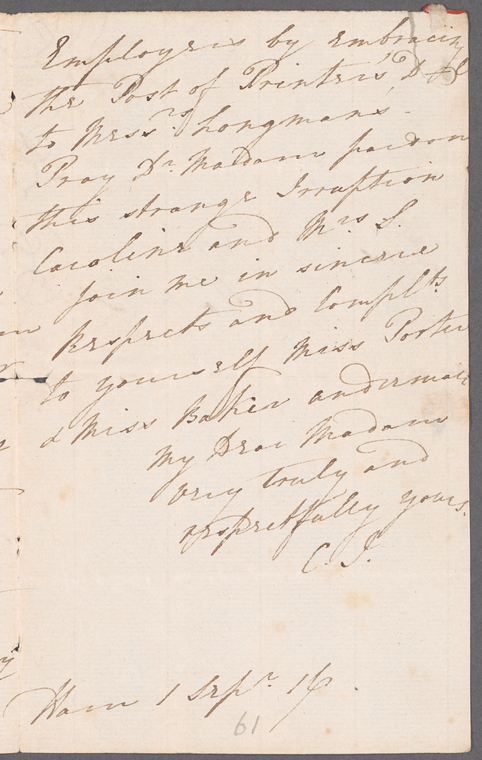 Employers by embracing
the Post of Printer's D—l
to Messrs. Longmans.
Pray Dr. Madam pardon
this strange Irruption
Caroline and Mrs S.
join me in sincere
Respects and Complts.
to yourself Miss Porter
& Miss Baker and
My Dear Madam
very truly and
respectfully yours.
C. S.
Ham 1 Sepr. 16.
61